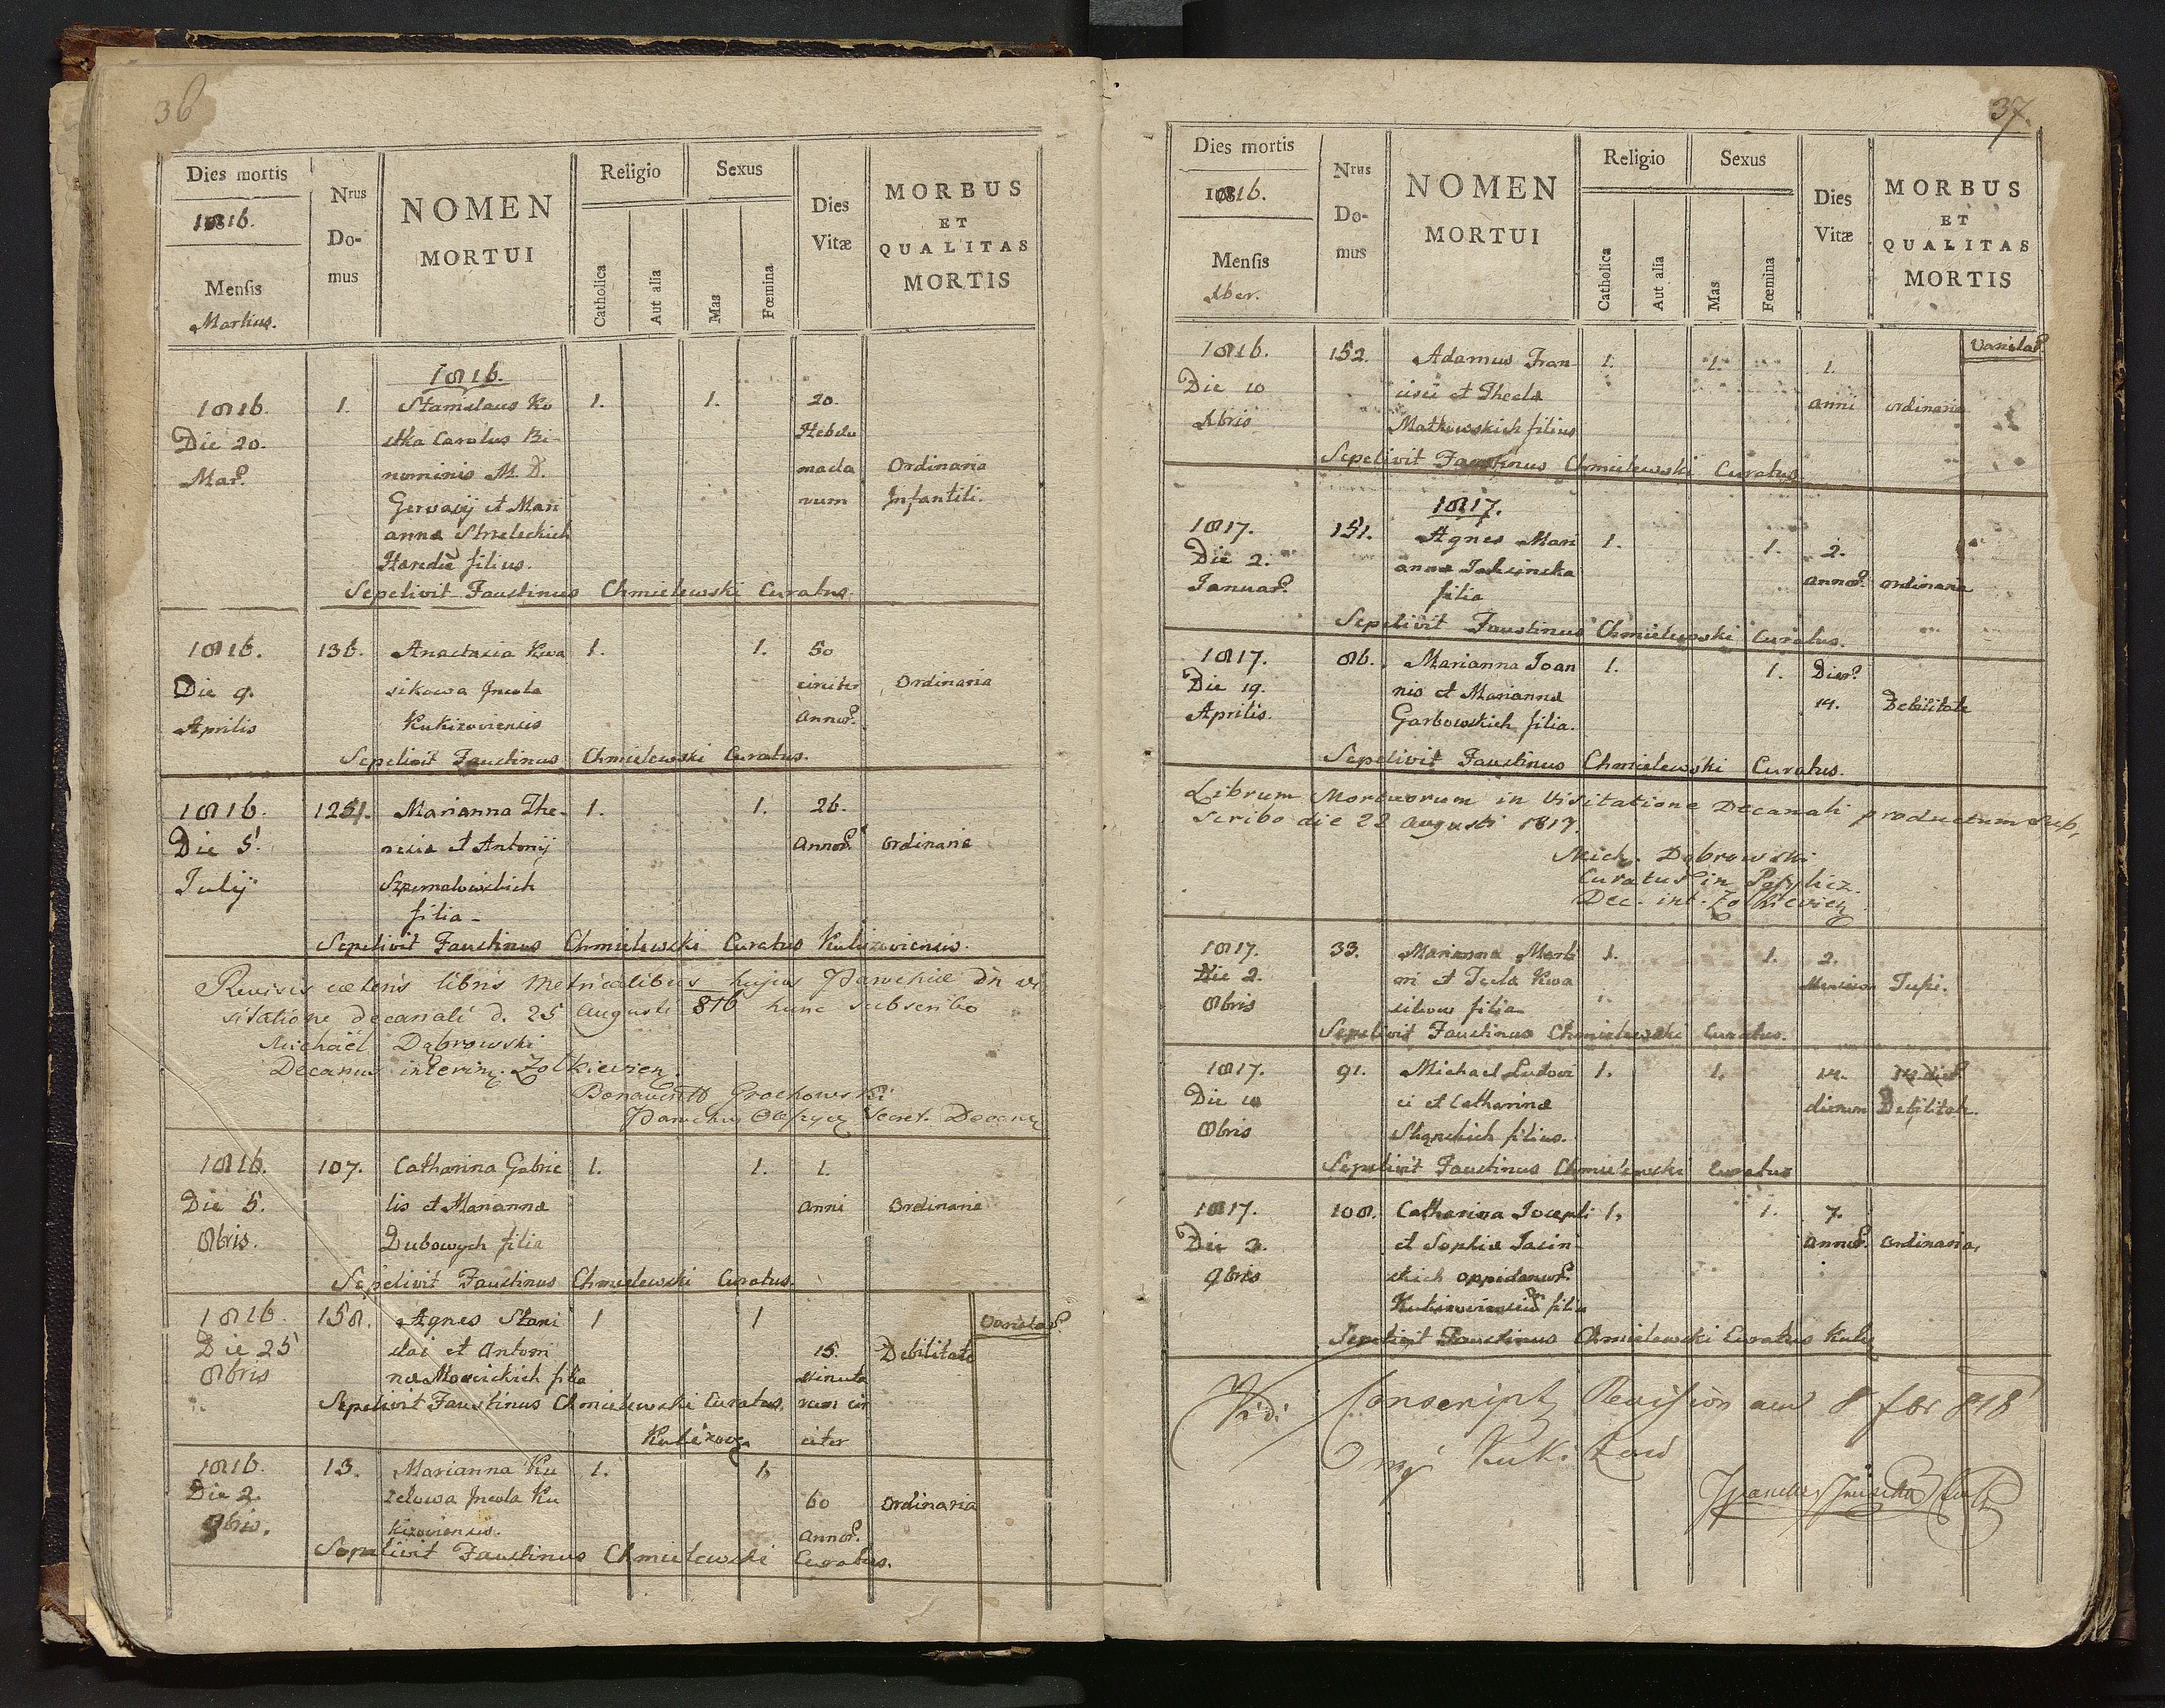 36
Dies mortis
1816.
Mensis
Martius.
Nrus Domus
NOMEN
MORTUI
Religio
Catholica
Aut alia
Sexus
Mas
Fœmina
Dies
Vitæ
MORBUS
ET
QUALITAS
MORTIS
1816.
1816. 1. Stanislaus Ko 1. 1. 20.
Die 20. stka Carolus Bi Hebdo
Mar. nominis M. D. mada Ordinaria
Gervasij et Mari rum Infantili.
anna Strzeleckich
Haredū filius.
Sepelivit Faustinus Chmielewski Curatus.
1816. 136. Anastasia Kwa 1. 1. 50
Die 9. sikowa Incola circiter Ordinaria
Aprilis Kukizoviensis annor.
Sepelivit Faustinus Chmielewski Curatus.
1816. 1251. Marianna The- 1. 1. 26.
Die 5. resia et Antonij Annor. ordinaria
Julij
filia
Sepelivit Faustinus Chmielewski Curatus Kukizoviensis.
Revisis cæteris libris Metricalibus hujus Parochiæ in vi
sitatione decanali d. 25 Augusti 816 hunc subscribo
Michaël Dąbrowski
Decanus interim. Zolkievien.
Grochowski
Secret. Decana
1816. 107. Catharina Gabrie 1. 1. 1.
Die 5. lis et Marianna anni Ordinaria
8bris. Dubowych filia
Sepelivit Faustinus Chmielewski Curatus.
1816. 158. Agnes Stani 1 1 Variolar.
Die 25 slai et Antoni 15. Debilitate
8bris na filia minuta
Sepelivit Faustinus Chmielewski Curatus, rum cir
citer
1816. 13. Marianna Ku 1. 1.
Die 2. Incola Ku 60 Ordinaria
9bris. kizoviensis. Annor.
Sepelivit Faustinus Chmielewski Curatus.
37.
Dies mortis
1816.
Mensis
Xber.
Nrus Domus
NOMEN
MORTUI
Religio
Catholica
Aut alia
Sexus
Mas
Fœmina
Dies
Vitæ
MORBUS
ET
QUALITAS
MORTIS
Variolar.
1816. 152. Adamus Fran 1. 1. 1.
Die 10 cisci et Thecla anni ordinaria
Xbris Matkowskich filius
Sepelivit Faustinus Chmielewski Curatus
1817.
1817. 151. Agnes Mari 1. 1. 2.
Die 2. anna annor. ordinaria
Januar. filia
Sepelivit Faustinus Chmielewski Curatus.
1817. 86. Marianna Joan 1. 1. Dier.
Die 19. nis et Marianna 14. Debilitate
Aprilis. Garbowskich filia.
Sepelivit Faustinus Chmielewski Curatus.
Librum Mortuorum in Visitatione Decanali productum sub,
scribo die 22 Augusti 1817.
Mich. Dąbrowski
Curatus in
Dec. int. Zolkievien
1817. 33. Marianna Marti 1. 1. 2.
Die 2. ni et Tecla Kwa Mensium Tussi.
8bris filia
Sepelivit Faustinus Chmielewski Curatus.
1817. 91. Michael Ludovi 1. 1. 14. 14 dier.
Die 10 ci et Catharina dierum Debilitate.
8bris filius.
Sepelivit Faustinus Chmielewski Curatus
1817. 108. Catharina Josephi 1, 1. 7.
Die 3. et Sophia Jasin Annor. ordinaria,
9bris skich oppidanor.
Kukizoviensiu filia
Sepelivit Faustinus Chmielewski Curatus Kukiz
Vidi Conscript Revision 818
Kukizow